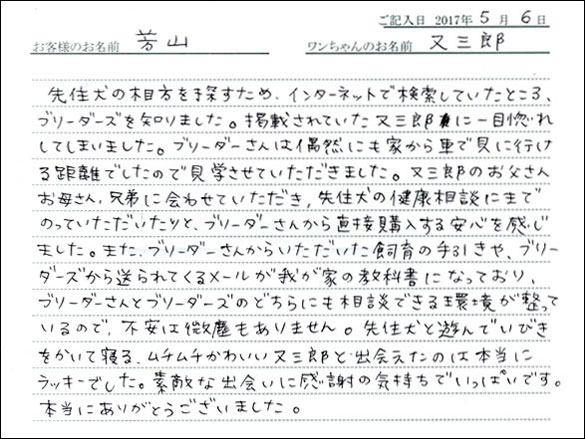 ご記入日 2017年 5月 6日
お客様のお名前 芳山 ワンちゃんのお名前 又三郎
先住犬の相方を探すため、インターネットで検索していたところ、
ブリーダーズを知りました。掲載されていた又三郎に一目惚れ
してしまいました。ブリーダーさんは偶然にも家から車で見に行け
る距離でしたので見学させていただきました。又三郎のお父さん
お母さん、兄弟に会わせていただき、先住犬の健康相談にまで
のっていただいたりと、ブリーダーさんから直接購入する安心を感じ
ました。また、ブリーダーさんからいただいた飼育の手引きや、ブリー
ダーズから送られてくるメールが我が家の教科書になっており、
ブリーダーさんとブリーダーズのどちらにも相談できる環境が整って
いるので、不安は微塵もありません。先住犬と遊んでいびき
をかいて寝る、ムチムチかわいい又三郎と出会えたのは本当に
ラッキーでした。素敵な出会いに感謝の気持ちでいっぱいです。
本当にありがとうございました。